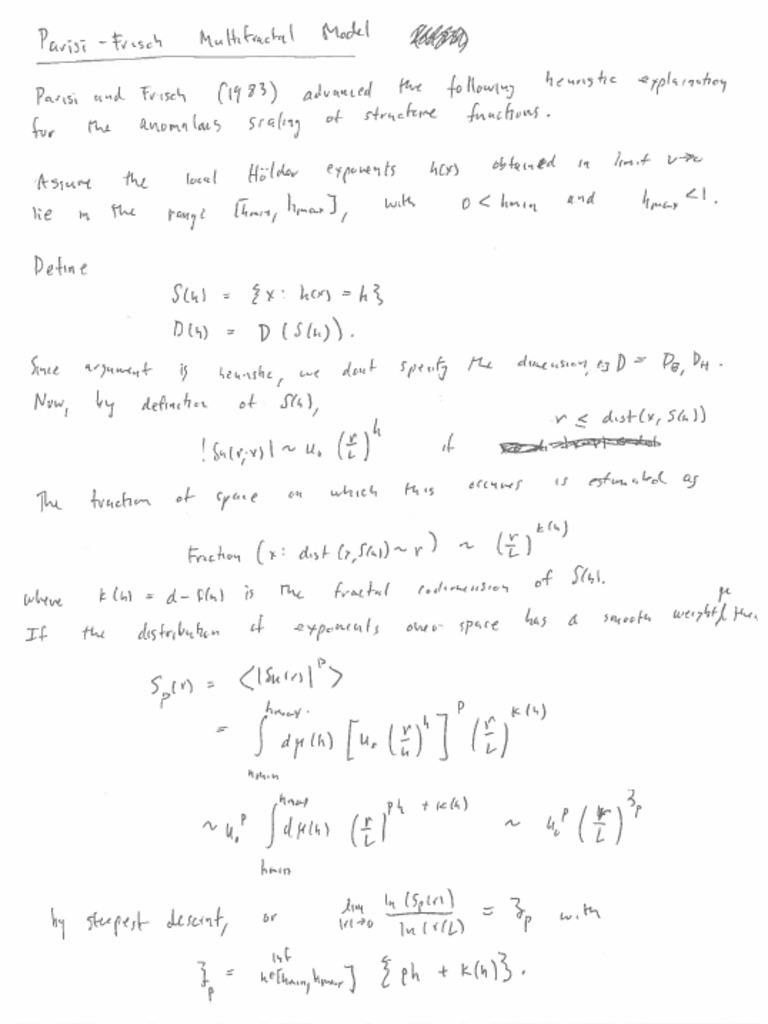 Parisi-Frisch Multifractal Model
Parisi and Frisch (1983) advanced the following heuristic explanation
for the anomalous scaling of structure functions.
Assume the local Hölder exponents h(x) obtained in limit ν→0
lie in the range [hmin, hmax], with 0 < hmin and hmax < 1.
Define
S(h) = {x: h(x) = h}
D(h) = D(S(h)).
Since argument is heuristic, we dont specify the dimension, eg D = D_B, D_H.
Now, by definition of S(h),
|δu(r;x)| ~ u₀ (r/L)^h if r ≤ dist(x, S(h))
The fraction of space on which this occurs is estimated as
Fraction (x: dist(x, S(h)) ~ r) ~ (r/L)^{κ(h)}
where κ(h) = d - D(h) is the fractal codimension of S(h).
If the distribution of exponents over space has a smooth weight, then
S_p(r) = ⟨|δu(r)|^p⟩
= ∫_{hmin}^{hmax} dμ(h) [u₀ (r/L)^h]^p (r/L)^{κ(h)}
~ u₀^p ∫_{hmin}^{hmax} dμ(h) (r/L)^{ph + κ(h)} ~ u₀^p (r/L)^{ζ_p}
by steepest descent, or lim_{|r|→0} ln(S_p(r)) / ln(r/L) = ζ_p with
ζ_p = inf_{h∈[hmin, hmax]} {ph + κ(h)}.